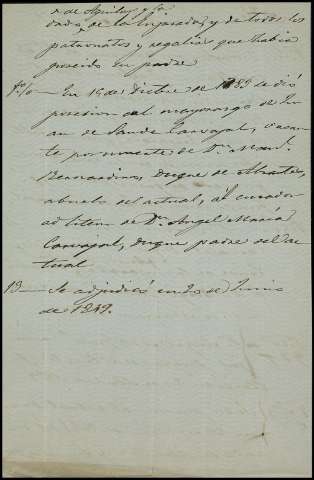 r de Aguilar, y fun
dados de la Enjarada, y de todos los
patronatos y regalias que habia
poseido su padre
En 16 de Dictbre de 1783 se dió
posesion al mayorazgo de Ju
an de Sande Carvajal, vacan
te por muerte de Dn. Manl.
Bernardino, duque de Abrantes,
abuelo del actual, al curador
ad litem de Dn. Angel Maria
Carvajal, duque padre del ac
tual
19— Se adjudicó en dos de Junio
de 1849.